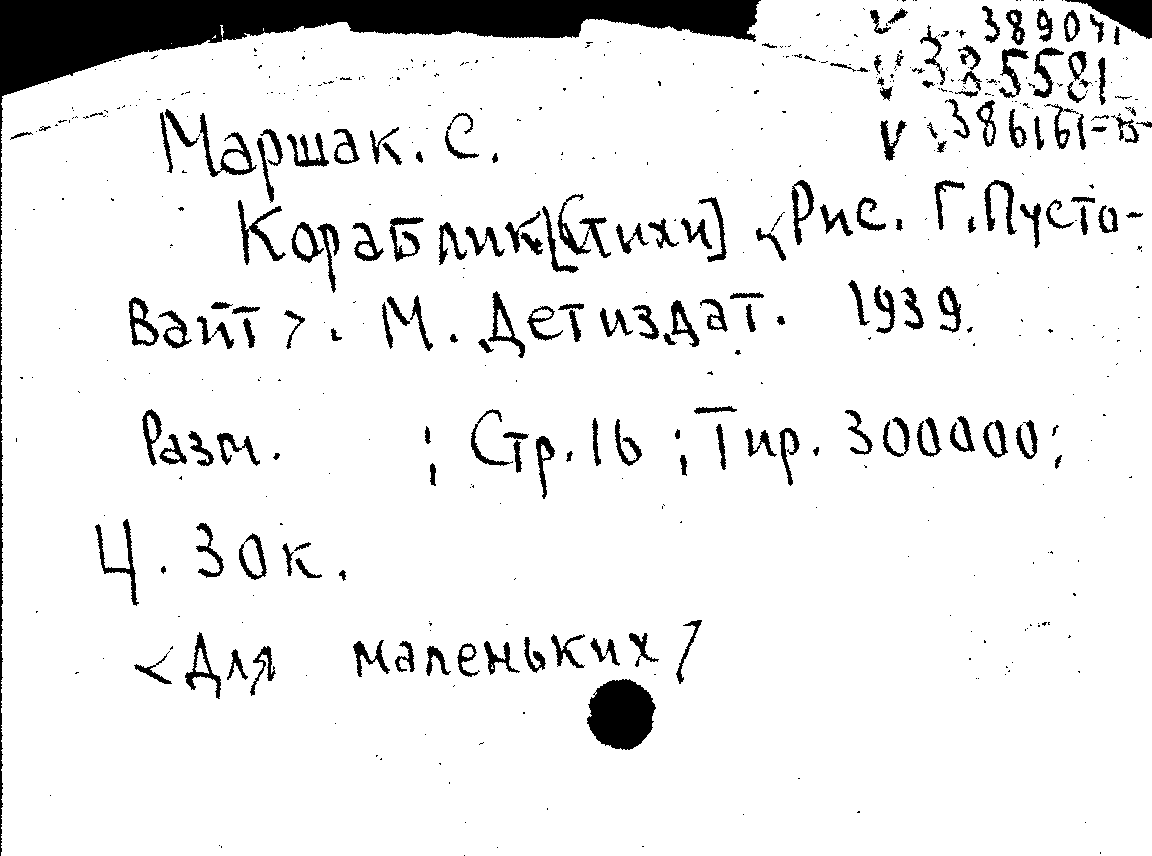 V 389071
V 385581
V 386161-В
Маршак. С.
Кораблик [Стихи] <Рис. Г. Пусто-
вайт>. М. Детиздат. 1939.
Разм. ; Стр. 16 ; Тир. 300000;
Ц. 30к.
<Для маленьких>